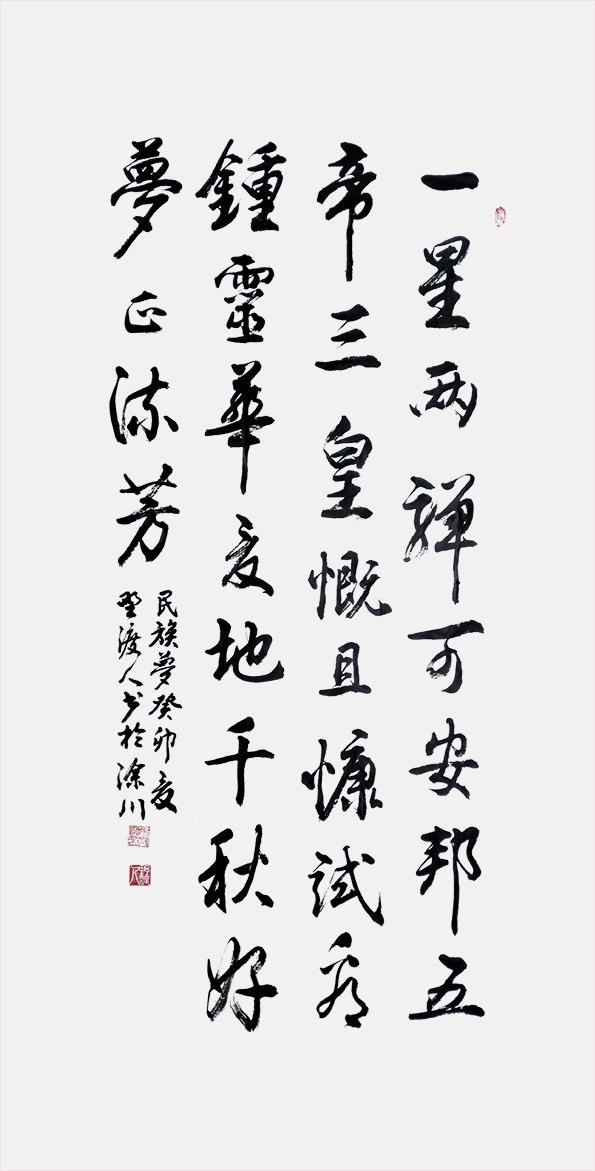 一星两彈可安邦五
帝三皇慨且慷試看
鍾靈華夏地千秋好
夢正流芳
民族夢癸卯夏
野渡人书於滁川